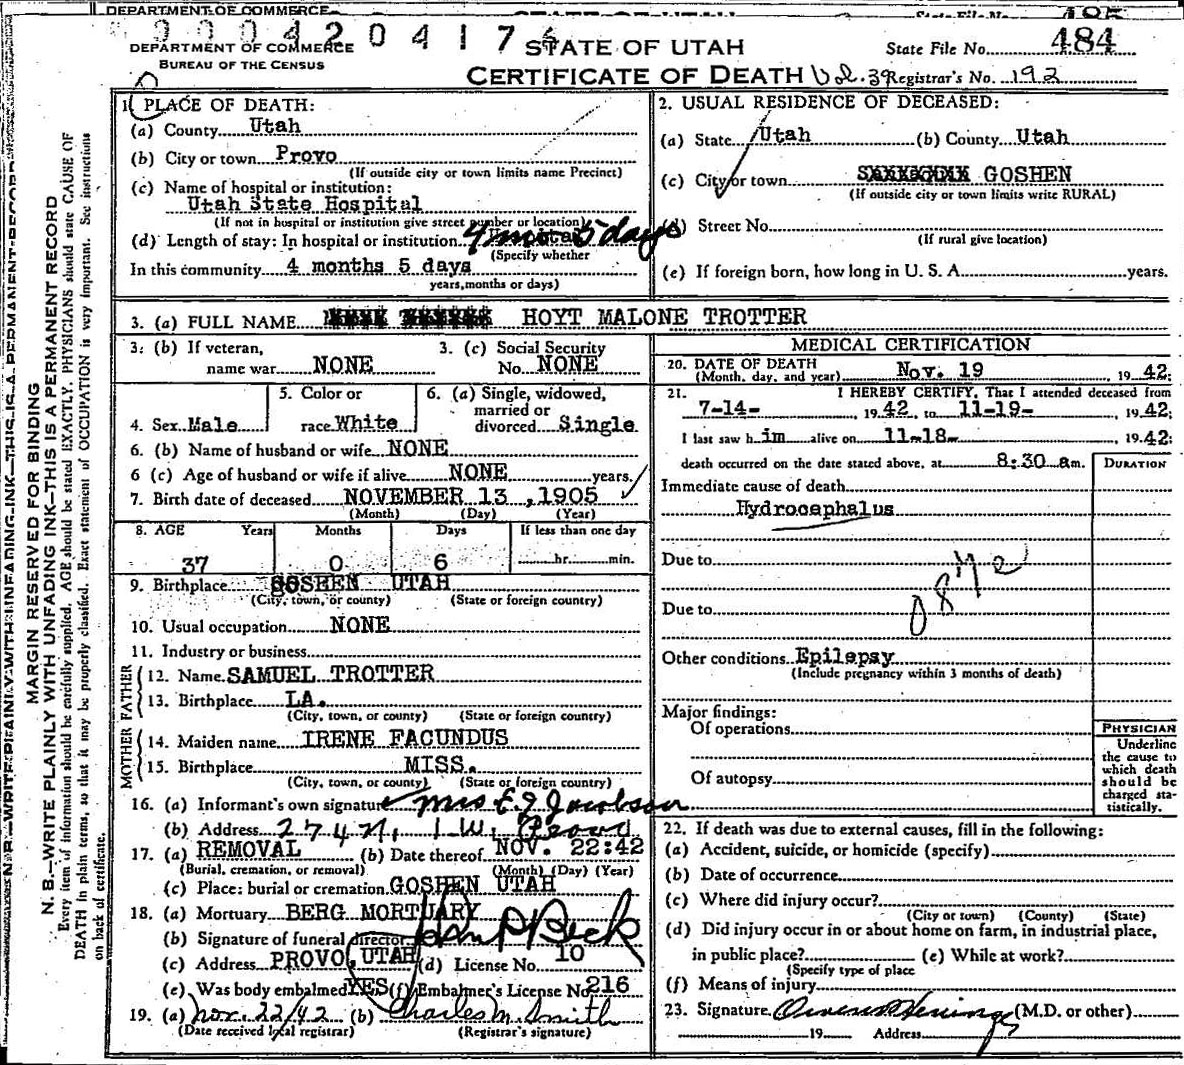 DEPARTMENT OF COMMERCE
State File No. 485
9 0 0 4 2 0 4 1 7 4
DEPARTMENT OF COMMERCE
BUREAU OF THE CENSUS
STATE OF UTAH
CERTIFICATE OF DEATH
State File No. 484
Registrar's No. 192
MARGIN RESERVED FOR BINDING
N. B.—WRITE PLAINLY WITH UNFADING INK—THIS IS A PERMANENT RECORD
Every item of information should be carefully supplied. AGE should be stated EXACTLY. PHYSICIANS should state CAUSE OF
DEATH in plain terms, so that it may be properly classified. Exact statement of OCCUPATION is very important. See instructions
on back of certificate.
1. PLACE OF DEATH:
(a) County Utah
(b) City or town Provo
(If outside city or town limits name Precinct)
(c) Name of hospital or institution:
Utah State Hospital
(If not in hospital or institution give street number or location)
(d) Length of stay: In hospital or institution 4 mo 5 days
(Specify whether
In this community 4 months 5 days
years, months or days)
2. USUAL RESIDENCE OF DECEASED:
(a) State Utah (b) County Utah
(c) City or town GOSHEN
(If outside city or town limits write RURAL)
(d) Street No.
(If rural give location)
(e) If foreign born, how long in U. S. A. years.
3. (a) FULL NAME HOYT MALONE TROTTER
3. (b) If veteran,
name war NONE
3. (c) Social Security
No. NONE
4. Sex Male
5. Color or
race White
6. (a) Single, widowed,
married or
divorced Single
6. (b) Name of husband or wife NONE
6 (c) Age of husband or wife if alive NONE years.
7. Birth date of deceased NOVEMBER 13 ,1905
(Month) (Day) (Year)
8. AGE Years Months Days If less than one day
37 0 6 hr. min.
9. Birthplace GOSHEN UTAH
(City, town, or county) (State or foreign country)
10. Usual occupation NONE
11. Industry or business
FATHER
12. Name SAMUEL TROTTER
13. Birthplace LA.
(City, town, or county) (State or foreign country)
MOTHER
14. Maiden name IRENE FACUNDUS
15. Birthplace MISS.
(City, town, or county) (State or foreign country)
16. (a) Informant's own signature Mrs E. J Jacobson
(b) Address 274 N. 1 W. Provo
17. (a) REMOVAL (b) Date thereof NOV. 22:42
(Burial, cremation, or removal) (Month) (Day) (Year)
(c) Place: burial or cremation GOSHEN UTAH
18. (a) Mortuary BERG MORTUARY
(b) Signature of funeral director
(c) Address PROVO, UTAH (d) License No. 10
(e) Was body embalmed YES (f) Embalmer's License No 216
19. (a) Nov. 22/42 (b) Charles M. Smith
(Date received local registrar) (Registrar's signature)
MEDICAL CERTIFICATION
20. DATE OF DEATH
(Month, day, and year) Nov. 19 19 42;
21. I HEREBY CERTIFY, That I attended deceased from
7-14- 19 42, to 11-19- , 19 42;
I last saw h im alive on 11-18- , 19 42;
death occurred on the date stated above, at 8:30 am.
DURATION
Immediate cause of death
Hydrocephalus
Due to
Due to
Other conditions Epilepsy
(Include pregnancy within 3 months of death)
Major findings:
Of operations
Of autopsy
PHYSICIAN
Underline
the cause to
which death
should be
charged sta-
tistically.
22. If death was due to external causes, fill in the following:
(a) Accident, suicide, or homicide (specify)
(b) Date of occurrence
(c) Where did injury occur?
(City or town) (County) (State)
(d) Did injury occur in or about home on farm, in industrial place,
in public place? (e) While at work?
(Specify type of place
(f) Means of injury
23. Signature (M.D. or other)
19 Address